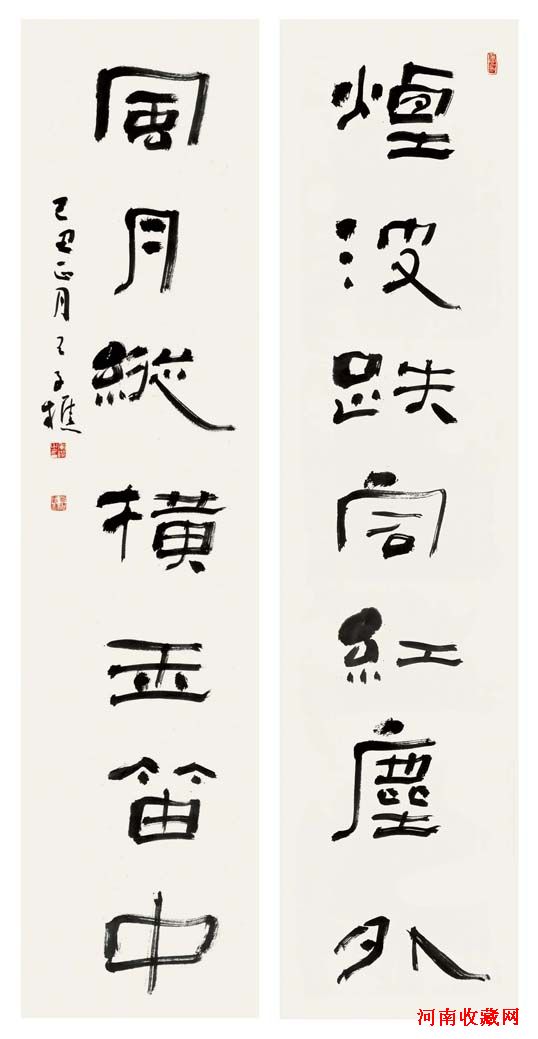 煙波跌宕紅塵外
風月縱橫玉笛中
己丑正月王子樵
河南收藏网